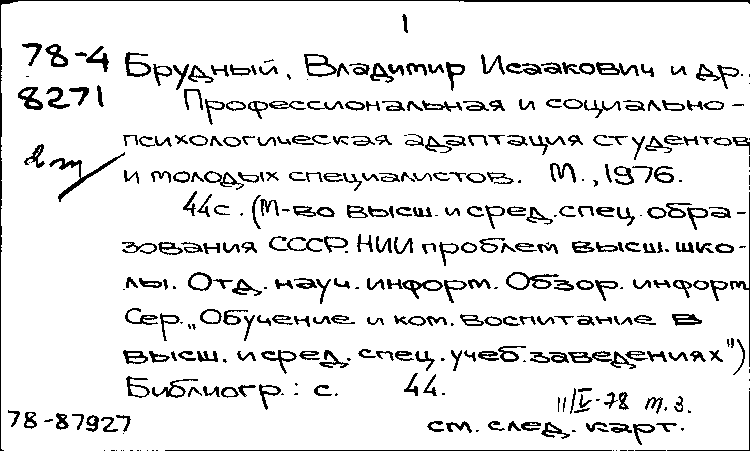 1
78-4 Брудный, Владимир Исаакович и др.
8271 Профессиональная и социально-
психологическая адаптация студентов
и молодых специалистов. М., 1976.
44с. (М-во высш. и сред. спец. обра-
зования СССР. НИИ проблем высш. шко-
лы. Отд. науч. информ. Обзор. информ.
Сер. „Обучение и ком. воспитание в
высш. и сред. спец. учеб. заведениях")
Библиогр.: с. 44.
11/IV-78 т.з.
78-87927 см. след. карт.